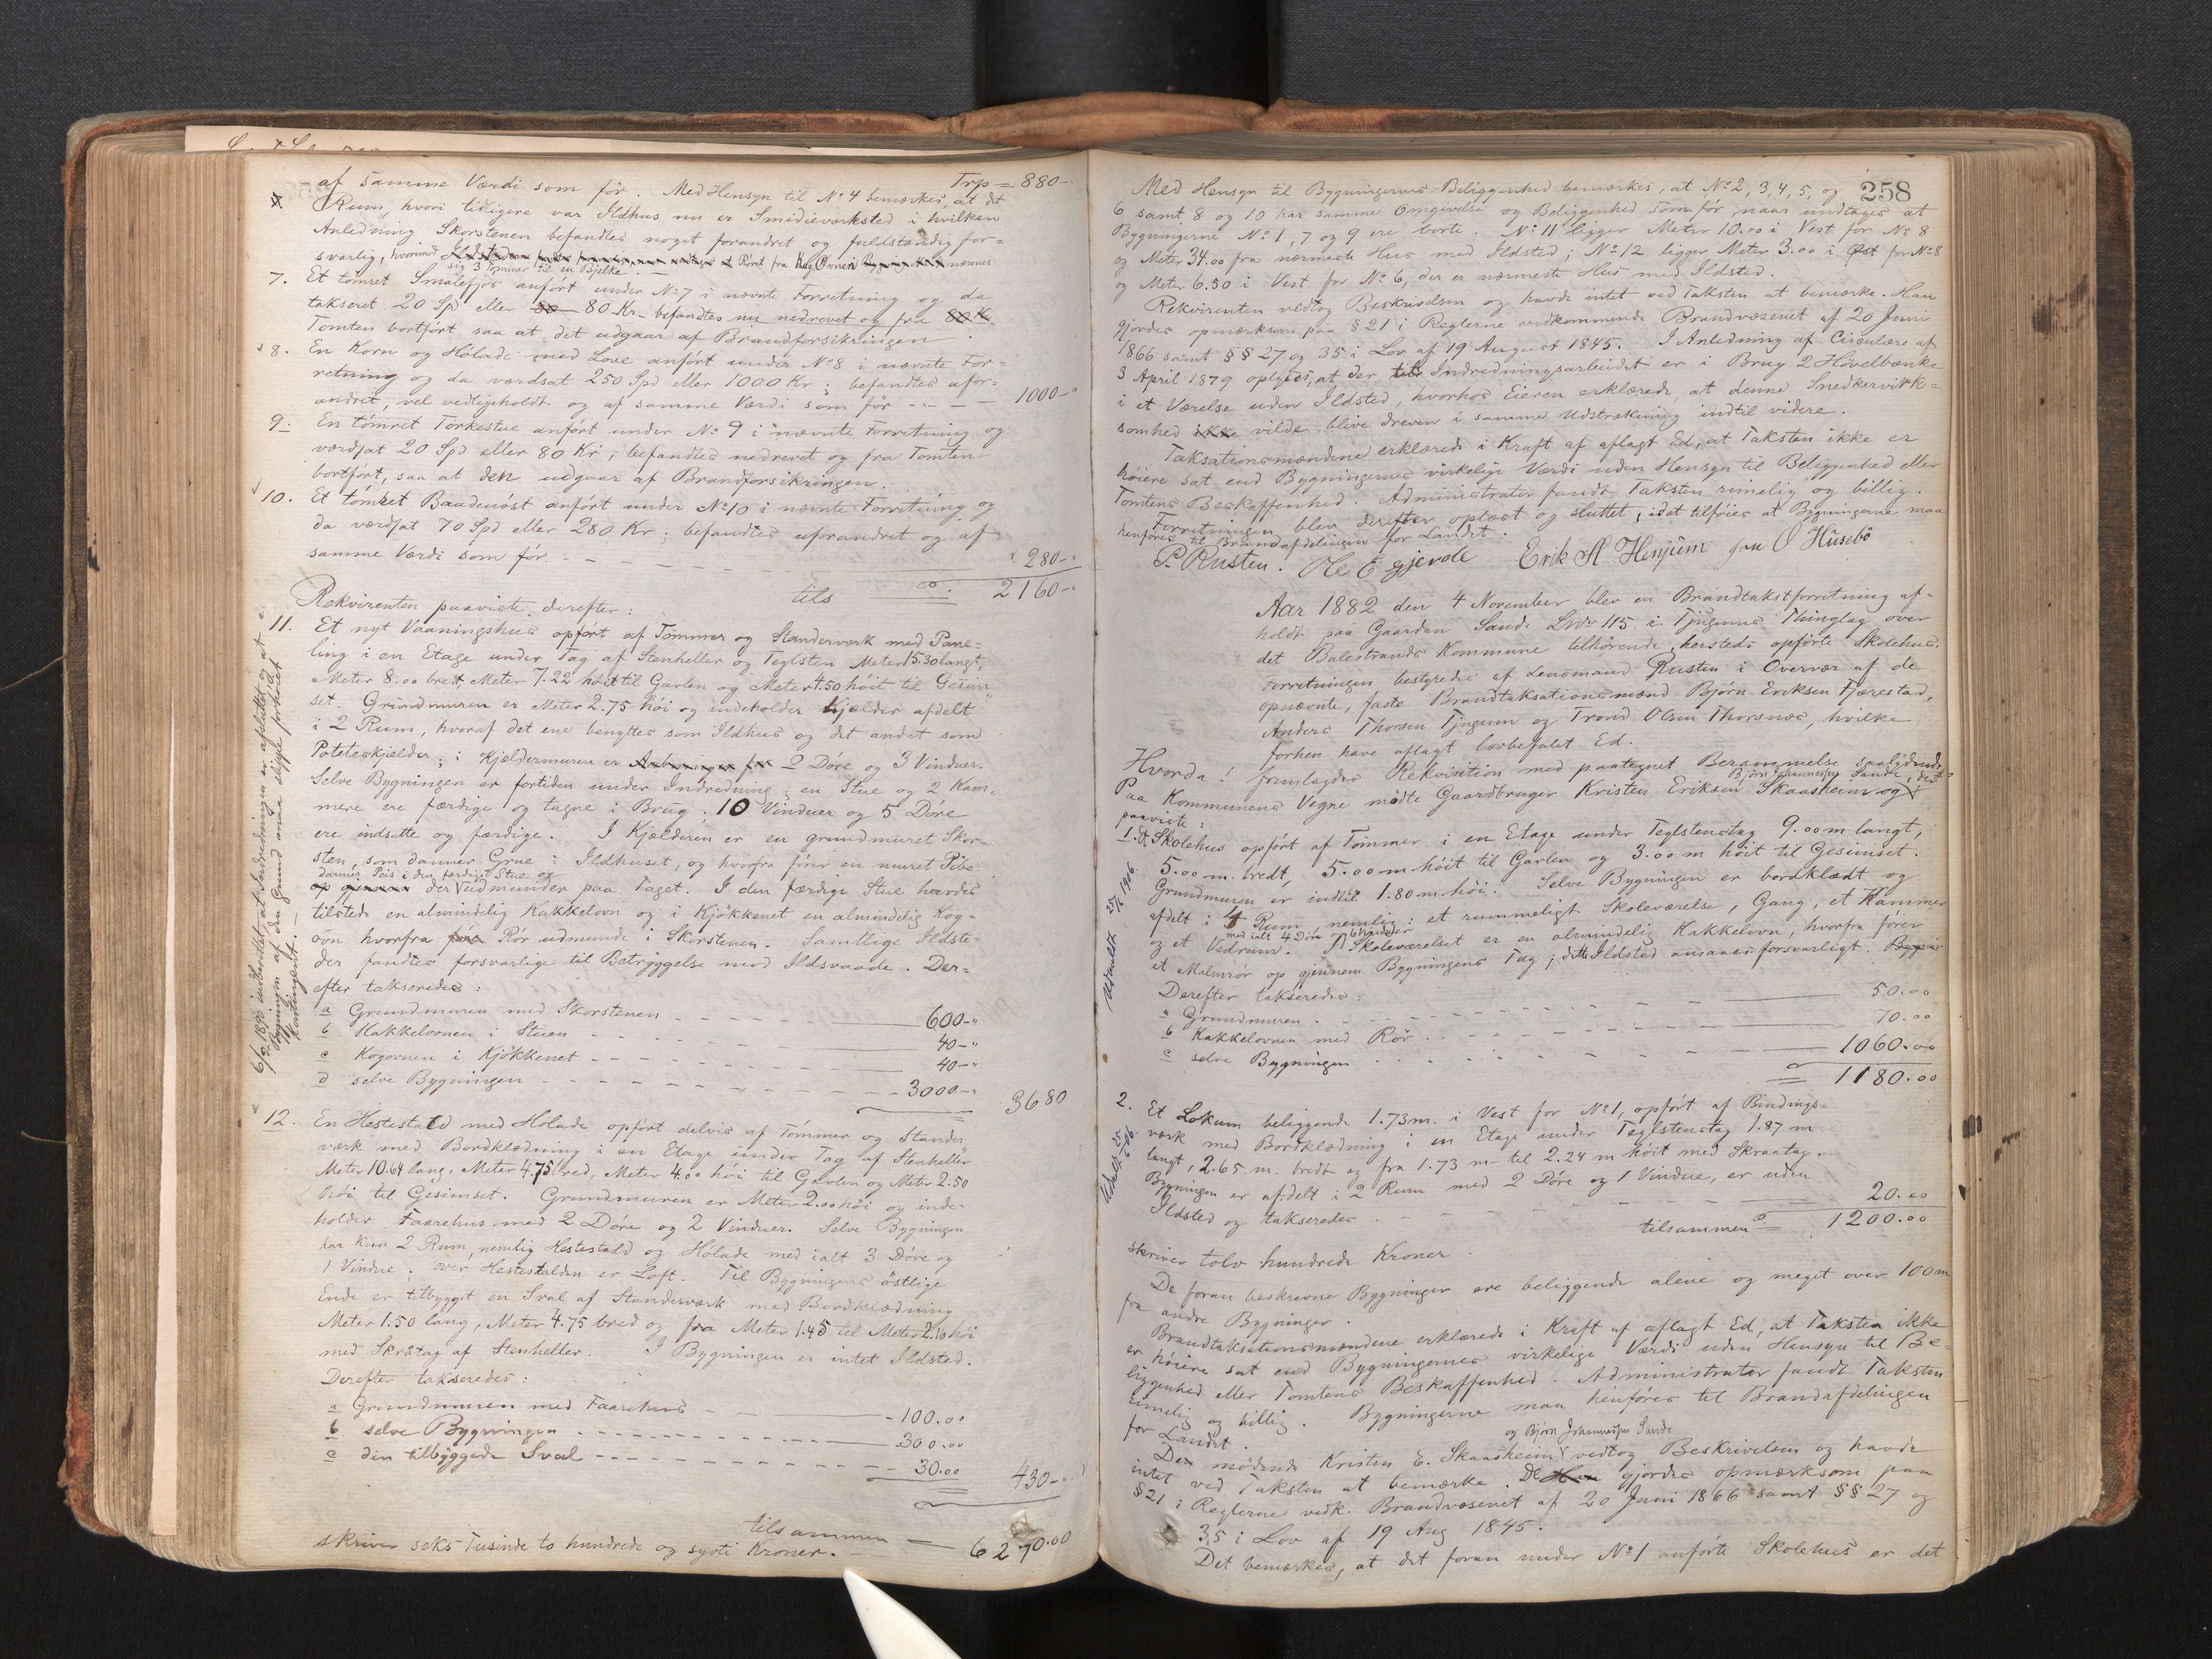 Trp = 880-
af samme Værdi som før. Med Hensyn til No 4 bemærkes, at det
Rum, hvori tidligere var Ildhus nu er Smedieværksted i hvilken
Anledning Skorstenen befandtes noget forandret og fuldstændig for=
svarlig, hvorimod Røret fra Kog Ovnen nævnes
sig 3 Tommer til en Bjelke. —
7. Et tømret Smalefjøs anført under No 7 i nævnte Forretning og da
takseret 20 Spd eller 80 Kr. befandtes nu nedrevet og fra
Tomten bortført saa at det udgaar af Brandforsikringen.
8. En Korn og Hølade med Love anført under No 8 i nævnte For=
retning og da værdsat 250 Spd eller 1000 Kr; befandtes ufor=
andret, vel vedligeholdt og af samme Værdi som før — — — 1000-"
9. En tømret Tørkestue anført under No 9 i nævnte Forretning og
værdsat 20 Spd eller 80 Kr; befandtes nedrevet og fra Tomten
bortført, saa at den udgaar af Brandforsikringen.
10. Et tømret Baadenøst anført under No 10 i nævnte Forretning og
da værdsat 70 Spd eller 280 Kr; befandtes uforandret og af
samme Værdi som før - - - - - - 280-"
tils 2160-"
Rekvirenten paaviste derefter:
11. Et nyt Vaaningshus opført af Tømmer og Standerværk med Pane=
ling i en Etage under Tag af Stenheller og Teglsten Meter 15.30 langt,
Meter 8.00 bredt Meter 7.22 høit til Gavlen og Meter 4.50 høit til Gesim
set. Grundmuren er Meter 2.75 høi og indeholder Kjælder afdelt
i 2 Rum, hvoraf det ene benyttes som Ildhus og det andet som
Poteteskjælder; i Kjældermuren er 2 Døre og 3 Vinduer.
Selve Bygningen er fortiden under Indredning; en Stue og 2 Kam=
mere ere færdige og tagne i Brug. 10 Vinduer og 5 Døre
ere indsatte og færdige. I Kjælderen er en grundmuret Skor=
sten, som danner Grue i Ildhuset, og hvorfra fører en muret Pibe
danner Peis i den færdige Stue og
der Veidmunder paa Taget. I den færdige Stue havdes
tilstede en almindelig Kakkelovn og i Kjøkkenet en almindelig Kog=
ovn hvorfra Rør udmunde i Skorstenen. Samtlige Ildste=
der fandtes forsvarlige til Betryggelse mod Ildsvaade. Der=
efter takseredes:
a Grundmuren med Skorstenen - - - - 600-"
b Kakkelovnen i Stuen - - - 40-"
c Kogovnen i Kjøkkenet - - - 40-"
d selve Bygningen - - - - - 3000-" 3680
12. En Hestestald med Hølade opført delvis af Tømmer og Stander
værk med Bordklædning i en Etage under Tag af Stenheller
Meter 10.64 lang, Meter 4.75 bred, Meter 4.00 høi til Gavlen og Meter 2.50
høi til Gesimset. Grundmuren er Meter 2.00 høi og inde=
holder Faarehus med 2 Døre og 2 Vinduer. Selve Bygningen
har kun 2 Rum, nemlig Hestestald og Hølade med ialt 3 Døre og
1 Vindue; over Hestestalden er Loft. Til Bygningens østlige
Ende er tilbygget en Sval af Standerværk med Bordklædning
Meter 1.50 lang, Meter 4.75 bred og fra Meter 1.45 til Meter 2.10 høi
med Skråtag af Stenheller. I Bygningen er intet Ildsted.
Derefter takseredes:
a Grundmuren med Faarehus - 100.00
b selve Bygningen - - - - - 300.00
c den tilbyggede Sval - - - - 30.00 430-"
tilsammen — 6270.00
skriver seks Tusinde to hundrede og sytti Kroner.
6/2 1890 indberettet at Indredningen er afsluttet og at
Bygningen af den Grund maa slippe forhøiet
Kontingent. —
258
Med Hensyn til Bygningernes Beliggenhed bemærkes, at No 2, 3, 4, 5, og
6 samt 8 og 10 har samme Omgivelse og Beliggenhed som før naar undtages at
Bygningerne No 1, 7 og 9 ere borte. No 11 ligger Meter 10.00 i Vest for No 8
og Meter 34.00 fra nærmeste Hus med Ildsted; No 12 ligger Meter 3.00 i Øst for No 8
og Meter 6.50 i Vest for No 6, der er nærmeste Hus med Ildsted.
Rekvirenten vedtog Beskrivelsen og havde intet ved Taksten at bemærke. Han
gjordes opmærksom paa § 21 i Reglerne vedkommende Brandvæsenet af 20 Juni
1866 samt §§ 27 og 35 i Lov af 19 August 1845. I Anledning af Circulære af
3 April 1879 oplystes, at der til Indredningsarbeidet er i Brug 2 Høvelbænke
i et Værelse uden Ildsted, hvorhos Eieren erklærede at denne Snedkervirk=
somhed ikke vilde blive dreven i samme Udstrækning indtil videre.
Taksationsmændene erklærede i Kraft af aflagt Ed, at Taksten ikke er
høiere sat end Bygningernes virkelige Værdi uden Hensyn til Beliggenhed eller
Tomtens Beskaffenhed. Administrator fandt Taksten rimelig og billig.
Forretningen blev derefter oplæst og sluttet, idet tilføies at Bygningerne maa
henføres til Brandafdelingen for Landet.
P. Rusten. Ole E Gjerde Erik A Henjum Jan O Husebö
Aar 1882 den 4 November blev en Brandtakstforretning af=
holdt paa Gaarden Sande LNo 115 i Tjugums Thinglag over
det Balestrands Kommune tilhørende, hersteds opførte Skolehus.
Forretningen bestyredes af Lensmand Rusten i Overvær af de
opnævnte, faste Brandtaksationsmænd Bjørn Eriksen Fjærestad,
Anders Thorsen Tjugum og Trond Olsen Thorsnæs, hvilke
forhen have aflagt lovbefalet Ed.
Hvorda! fremlagdes Rekvisition med paategnet Berammelse saalydende
Bjørn Johannesen Sande, der
Paa Kommunens Vegne mødte Gaardbruger Kristen Eriksen Skaasheim og
paaviste:
1. Et Skolehus opført af Tømmer i en Etage under Teglstenstag 9.00 m langt,
5.00 m. bredt, 5.00 m høit til Gavlen og 3.00 m høit til Gesimset.
Grundmuren er indtil 1.80 m høi. Selve Bygningen er bordklædt og
afdelt i 4 Rum, nemlig: et rummeligt Skoleværelse, Gang, et Kammer
med ialt 4 Døre og 6 Vinduer
og et Vedrum. I Skoleværelset er en almindelig Kakkelovn, hvorfra fører
et Malmrør op gjennem Bygningens Tag; dette Ildsted ansaaes forsvarligt.
Derefter takseredes:
a Grundmuren - - - - - 50.00
b Kakkelovnen med Rør - - - - 70.00
c selve Bygningen - - - - 1060.00
1180.00
2. Et Lokum beliggende 1.73 m. i Vest for No 1, opført af Bindings=
værk med Bordklædning i en Etage under Teglstenstag 1.87 m
langt, 2.65 m. bredt og fra 1.73 m til 2.24 m høit med Skraatag.
Bygningen er afdelt i 2 Rum med 2 Døre og 1 Vindue, er uden
Ildsted og takseredes - - - - 20.00
tilsammen 1200.00
skriver tolv hundrede Kroner.
De foran beskrevne Bygninger ere beliggende alene og meget over 100 m
fra andre Bygninger.
Brandtaksationsmændene erklærede i Kraft af aflagt Ed, at Taksten ikke
er høiere sat end Bygningernes virkelige Værdi uden Hensyn til Be=
liggenhed eller Tomtens Beskaffenhed. Administrator fandt Taksten
rimelig og billig. Bygningerne maa henføres til Brandafdelingen
for Landet.
og Bjørn Johannesen Sande
De mødende Kristen E. Skaasheim vedtog Beskrivelsen og havde
intet ved Taksten at bemærke. De gjordes opmærksom paa
§ 21 i Reglerne vedk. Brandvæsenet af 20 Juni 1866 samt §§ 27 og
35 i Lov af 19 Aug 1845.
Det bemærkes, at det foran under No 1 anførte Skolehus er det
Udmeldt 25/6 1906.
Udmeldt 25/6 06.